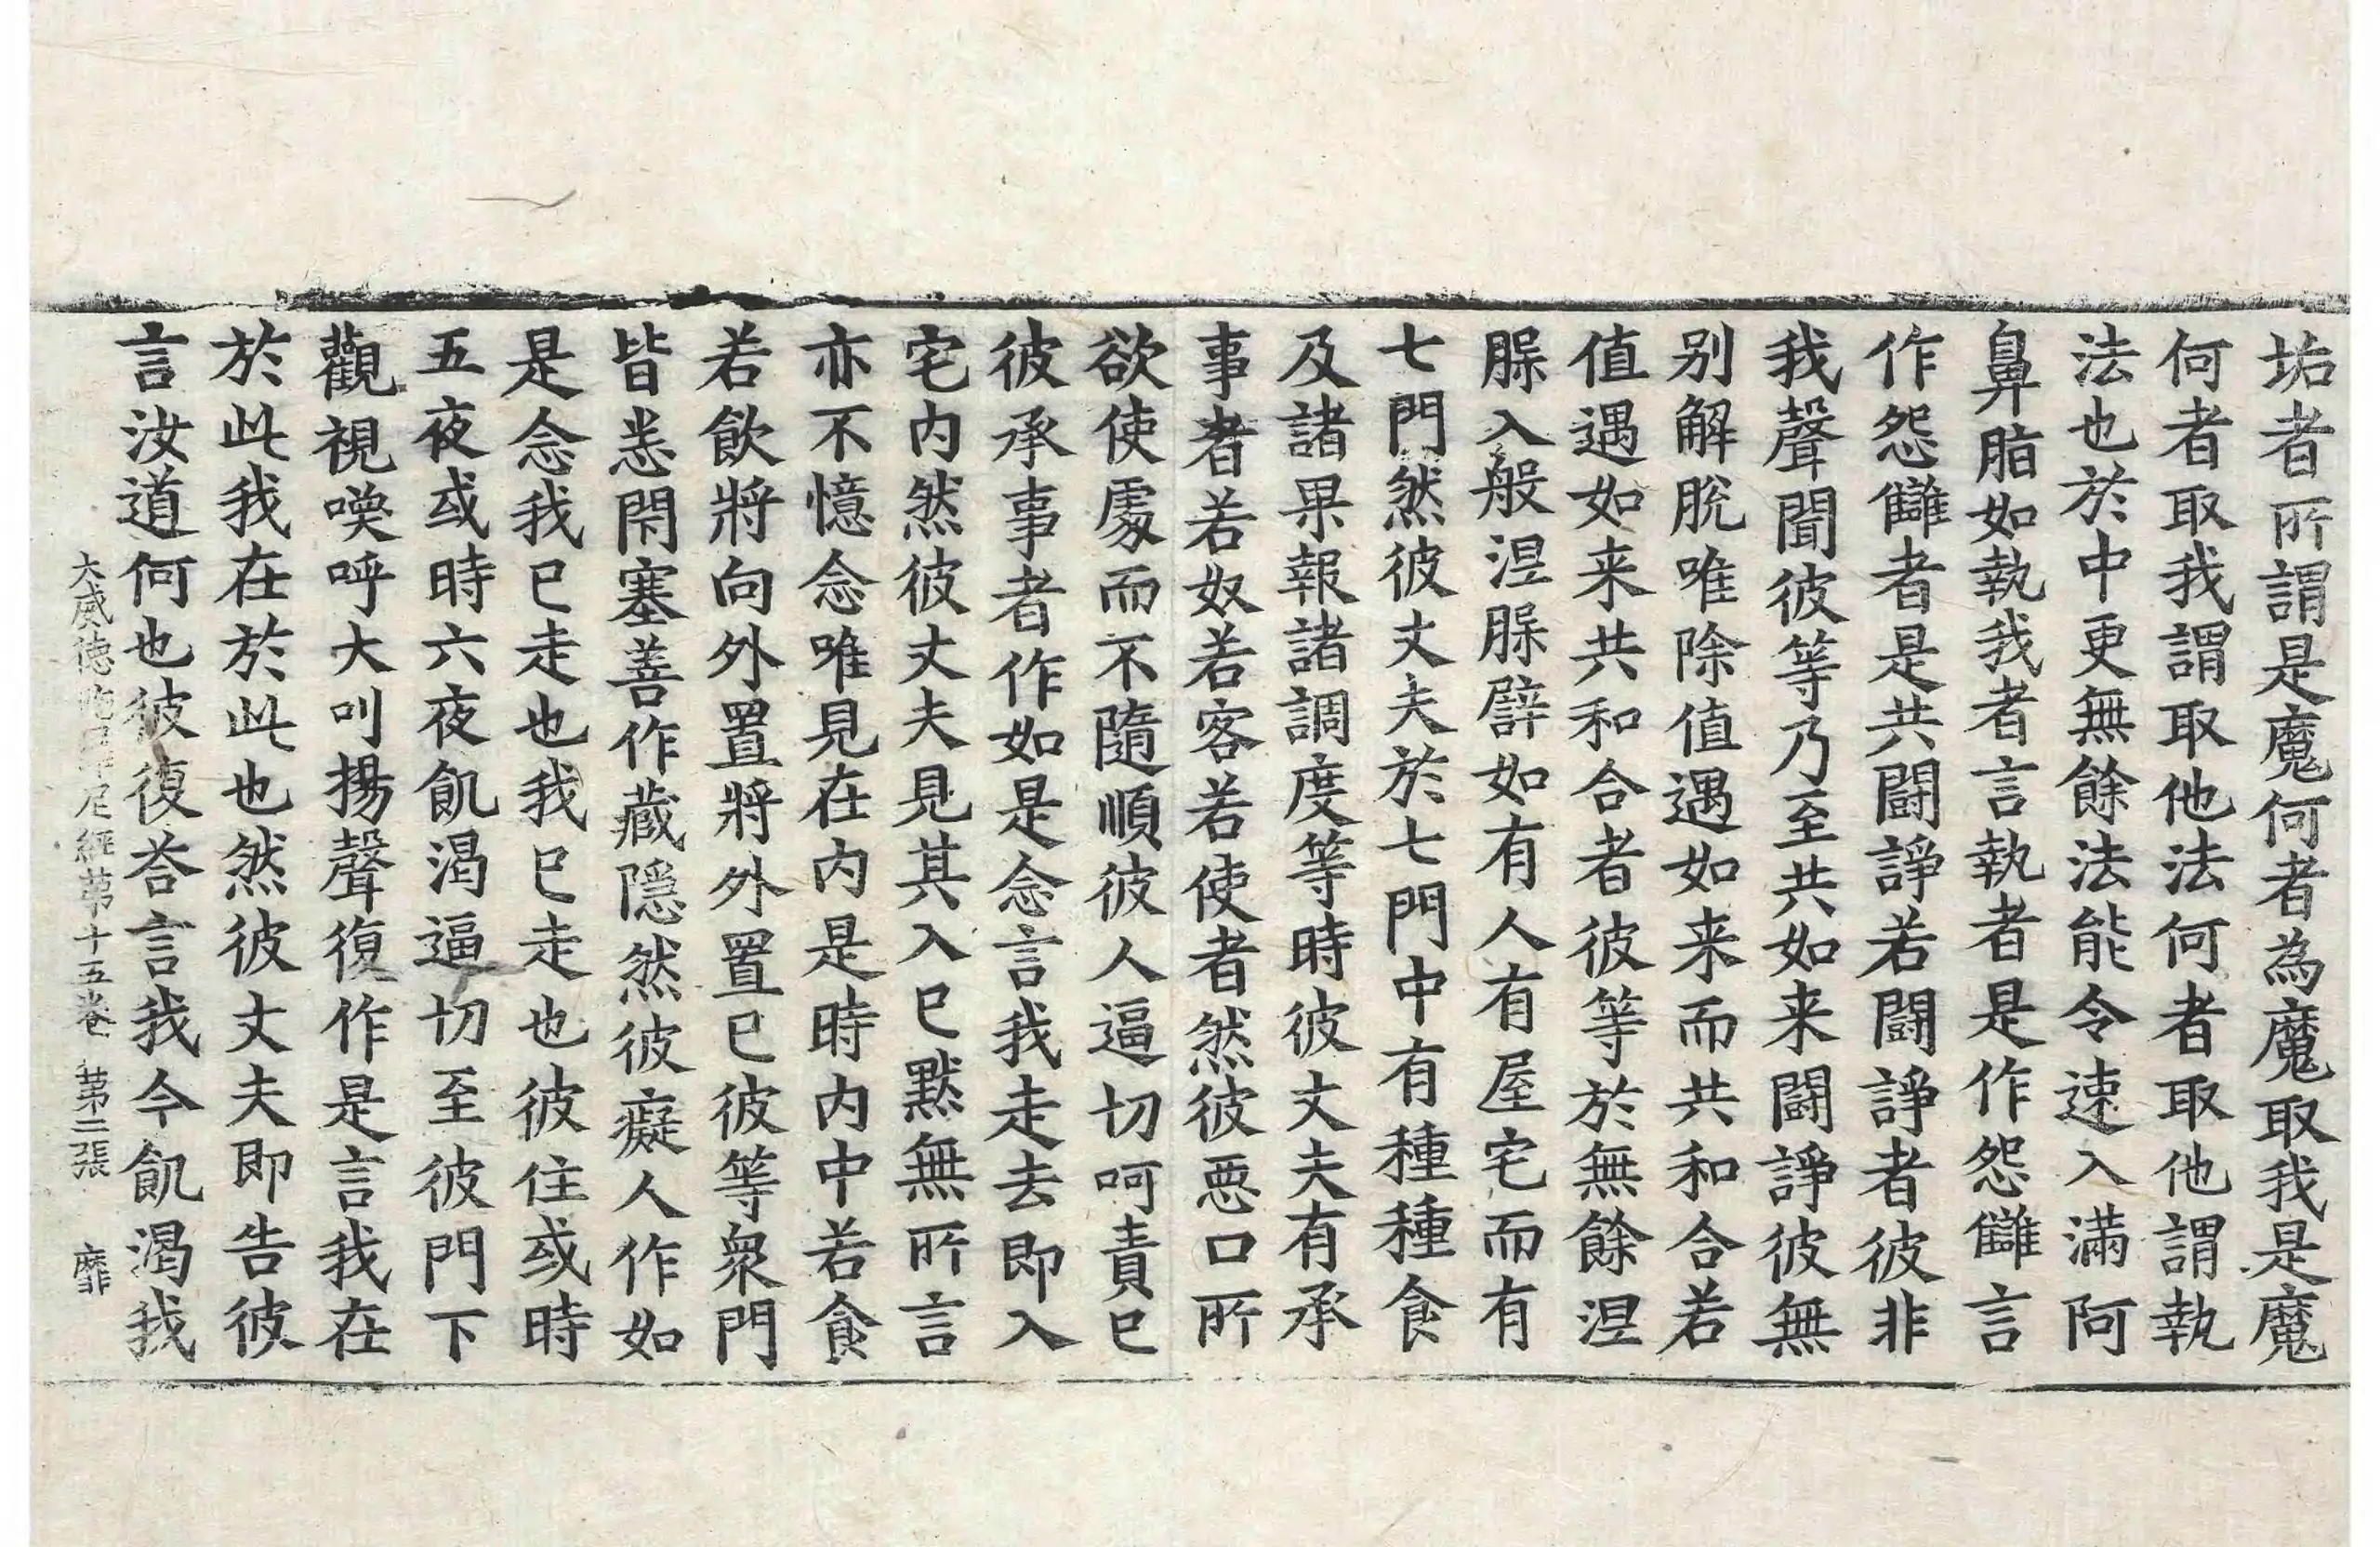 垢者所謂是魔何者為魔取我是魔
何者取我謂取他法何者取他謂執
法也於中更無餘法能令速入滿阿
鼻脂如執我者言執者是作怨讎言
作怨讎者是共鬪諍若鬪諍者彼非
我聲聞彼等乃至共如来鬪諍彼無
別解脫唯除值遇如来而共和合若
值遇如来共和合者彼等於無餘涅
脲入般涅脲譬如有人有屋宅而有
七門然彼丈夫於七門中有種種食
及諸果報諸調度等時彼丈夫有承
事者若奴若客若使者然彼惡口所
欲使處而不隨順彼人逼切呵責已
彼承事者作如是念言我走去即入
宅內然彼丈夫見其入已默無所言
亦不憶念唯見在內是時內中若食
若飲將向外置將外置已彼等衆門
皆悉閇塞善作藏隱然彼癡人作如
是念我已走也我已走也彼住或時
五夜或時六夜飢渴逼切至彼門下
觀視喚呼大叫揚聲復作是言我在
於此我在於此也然彼丈夫即告彼
言汝道何也彼復荅言我今飢渴我
大威德陁羅尼經苐十五卷 苐二張 靡